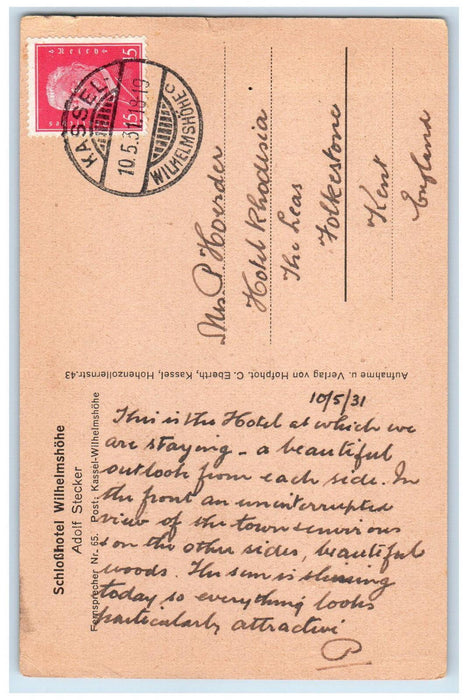 Schloßhotel Wilhelmshöhe
Adolf Stecker
Fernsprecher Nr. 65. Post: Kassel-Wilhelmshöhe
10/5/31
This is the Hotel at which we
are staying - a beautiful
outlook from each side. In
the front an uninterrupted
view of the town & environs
& on the other sides, beautiful
woods. The sun is shining
today so everything looks
particularly attractive
P
Aufnahme u. Verlag von Hofphot. C. Eberth, Kassel, Hohenzollernstr. 43
Deutsches Reich
15 15
KASSEL-
WILHELMSHÖHE
10.5.31.18-19
C
Mrs. P Hoerder
Hotel Rhodesia
The Leas
Folkestone
Kent
England